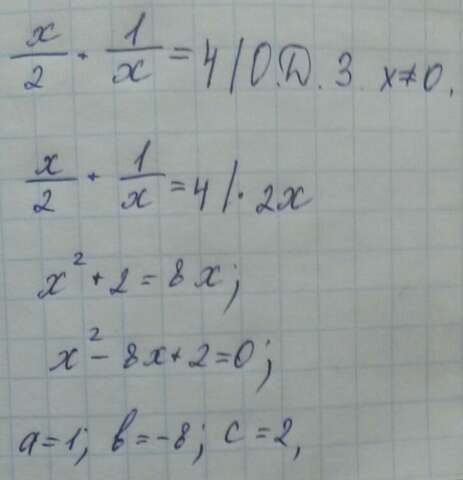 x/2 + 1/x = 4 / О.Д.З. x≠0.
x/2 + 1/x = 4 /· 2x
x² + 2 = 8x;
x² - 8x + 2 = 0;
a=1; b=-8; c=2,